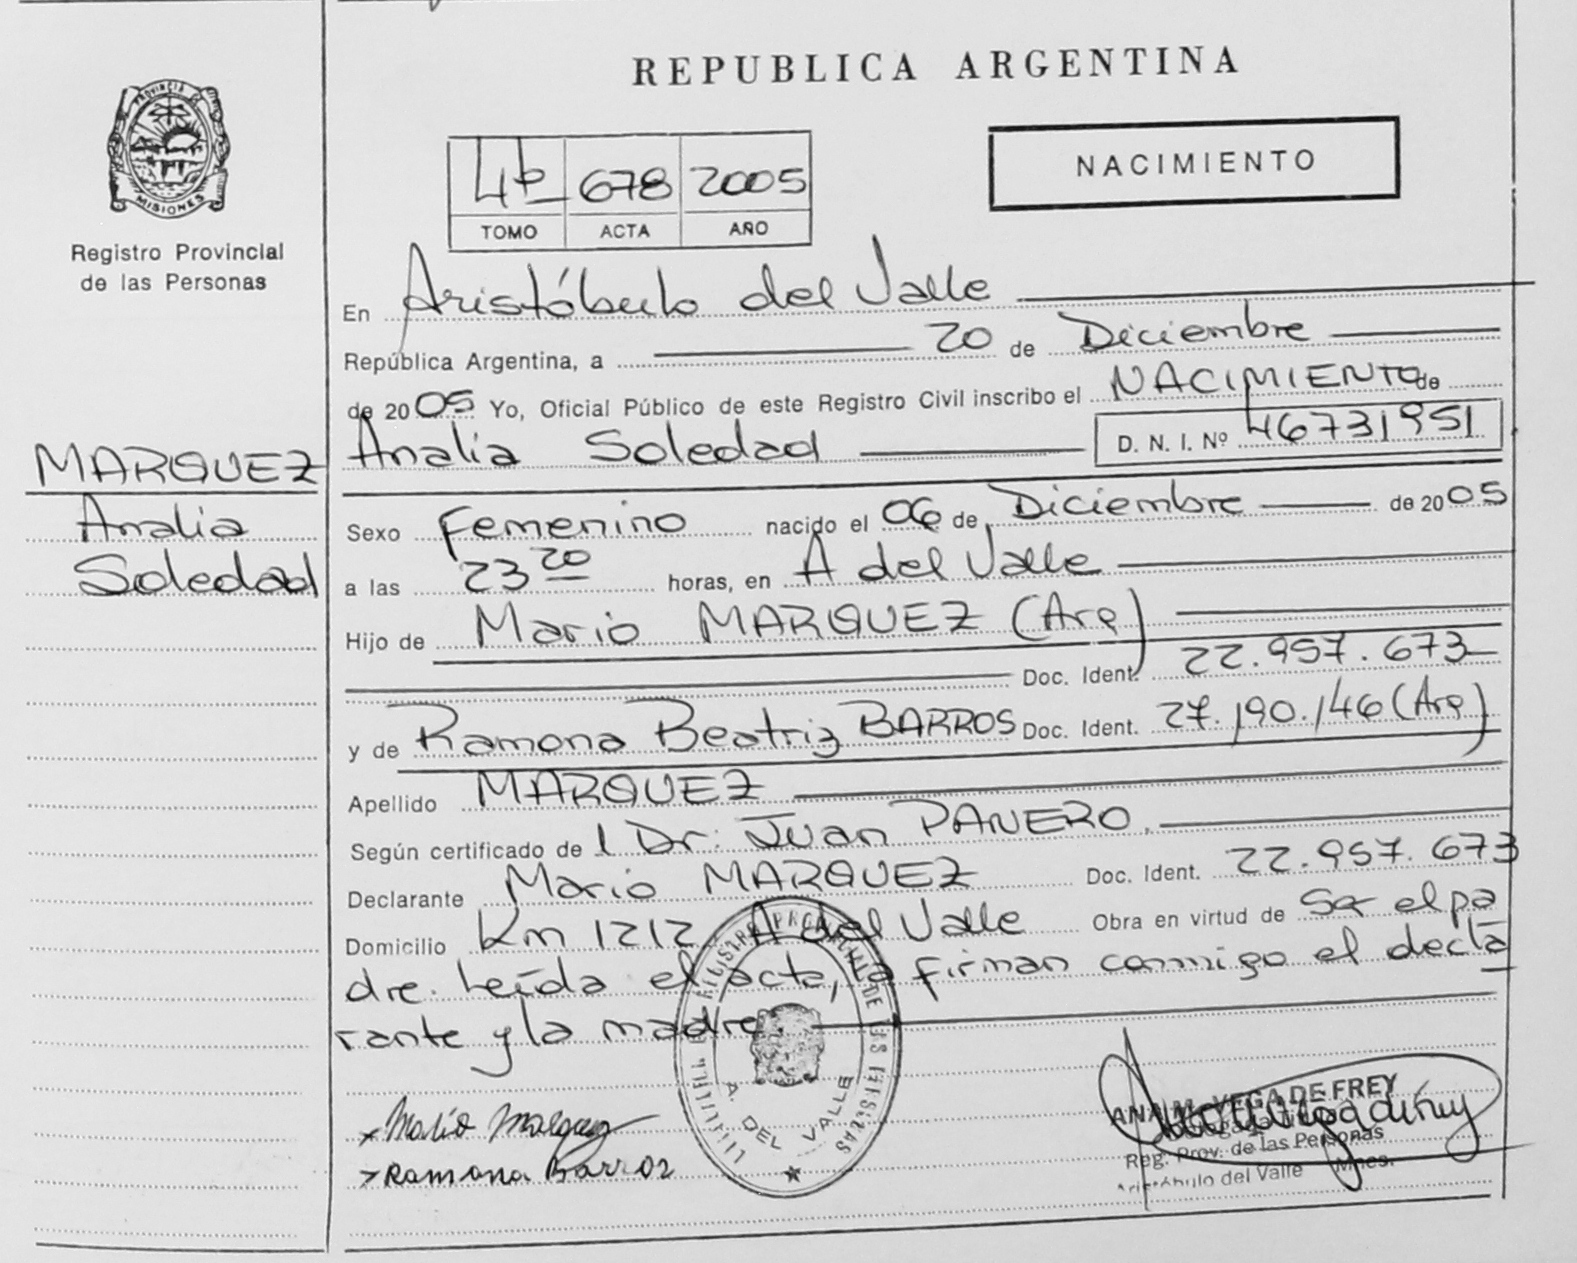 REPUBLICA ARGENTINA
PROVINCIA DE MISIONES
Registro Provincial
de las Personas
4b 678 2005
TOMO ACTA AÑO
NACIMIENTO
En Aristóbulo del Valle
República Argentina, a 20 de Diciembre
de 2005 Yo, Oficial Público de este Registro Civil inscribo el NACIMIENTO de
Analia Soledad D. N. I. Nº 46731951
MARQUEZ
Analia
Soledad
Sexo Femenino nacido el 06 de Diciembre de 2005
a las 23 20 horas, en A del Valle
Hijo de Mario MARQUEZ (Arg)
Doc. Ident. 22.957.673
y de Ramona Beatriz BARROS Doc. Ident. 27.190.146 (Arg)
Apellido MARQUEZ
Según certificado de l Dr. Juan PANERO.
Declarante Mario MARQUEZ Doc. Ident. 22.957.673
Domicilio Km 1212 A del Valle Obra en virtud de Ser el pa
dre. Leída el acta, la firman conmigo el decla
rante y la madre.
x Mario Marquez
x Ramona Barroz
A. DEL VALLE
ANA M. VEGA DE FREY
Reg. Prov. de las Personas
Aristóbulo del Valle Mnes.